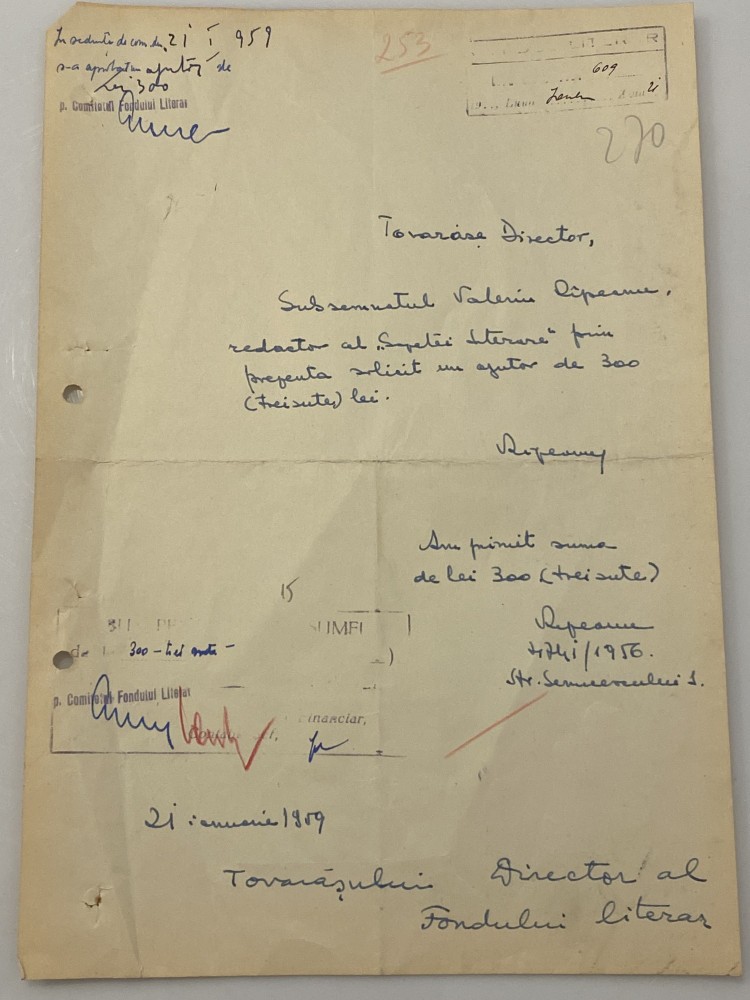 In ședința de com. din 21 I 959
s-a aprobat un ajutor de
Lei 300
p. Comitetul Fondului Literar
253
LITERAR
609
21
270
Tovarășe Director,
Subsemnatul Valeriu Rîpeanu,
redactor al „Gazetei literare" prin
prezenta solicit un ajutor de 300
(treisute) lei.
Rîpeanu
Am primit suma
de lei 300 (treisute)
Rîpeanu
/1956.
Str.
15
SUMEI
300 – trei sute –
p. Comitetul Fondului Literar
Financiar,
21 ianuarie 1959
Tovarășului Director al
Fondului literar